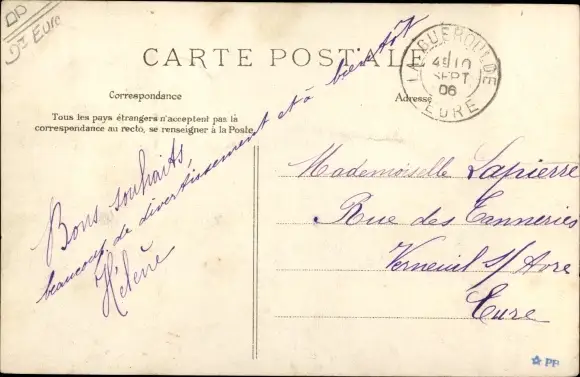 Dpt Eure
CARTE POSTALE
LA GUEROULDE
10
SEPT
06
EURE
Correspondance
Adresse
Tous les pays étrangers n'acceptent pas la
correspondance au recto, se renseigner à la Poste
Bons souhaits,
beaucoup de divertissement et à bientôt
Hélène
Mademoiselle Lapierre
Rue des Tanneries
Verneuil s/ Avre
Eure
PP